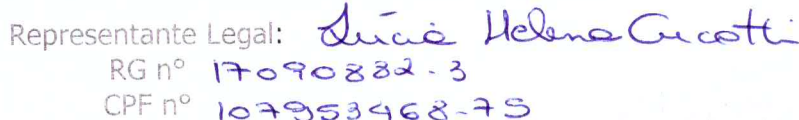 Representante Legal: Lúcia Helena Cucotti
RG nº 17090882-3
CPF nº 107953468-75